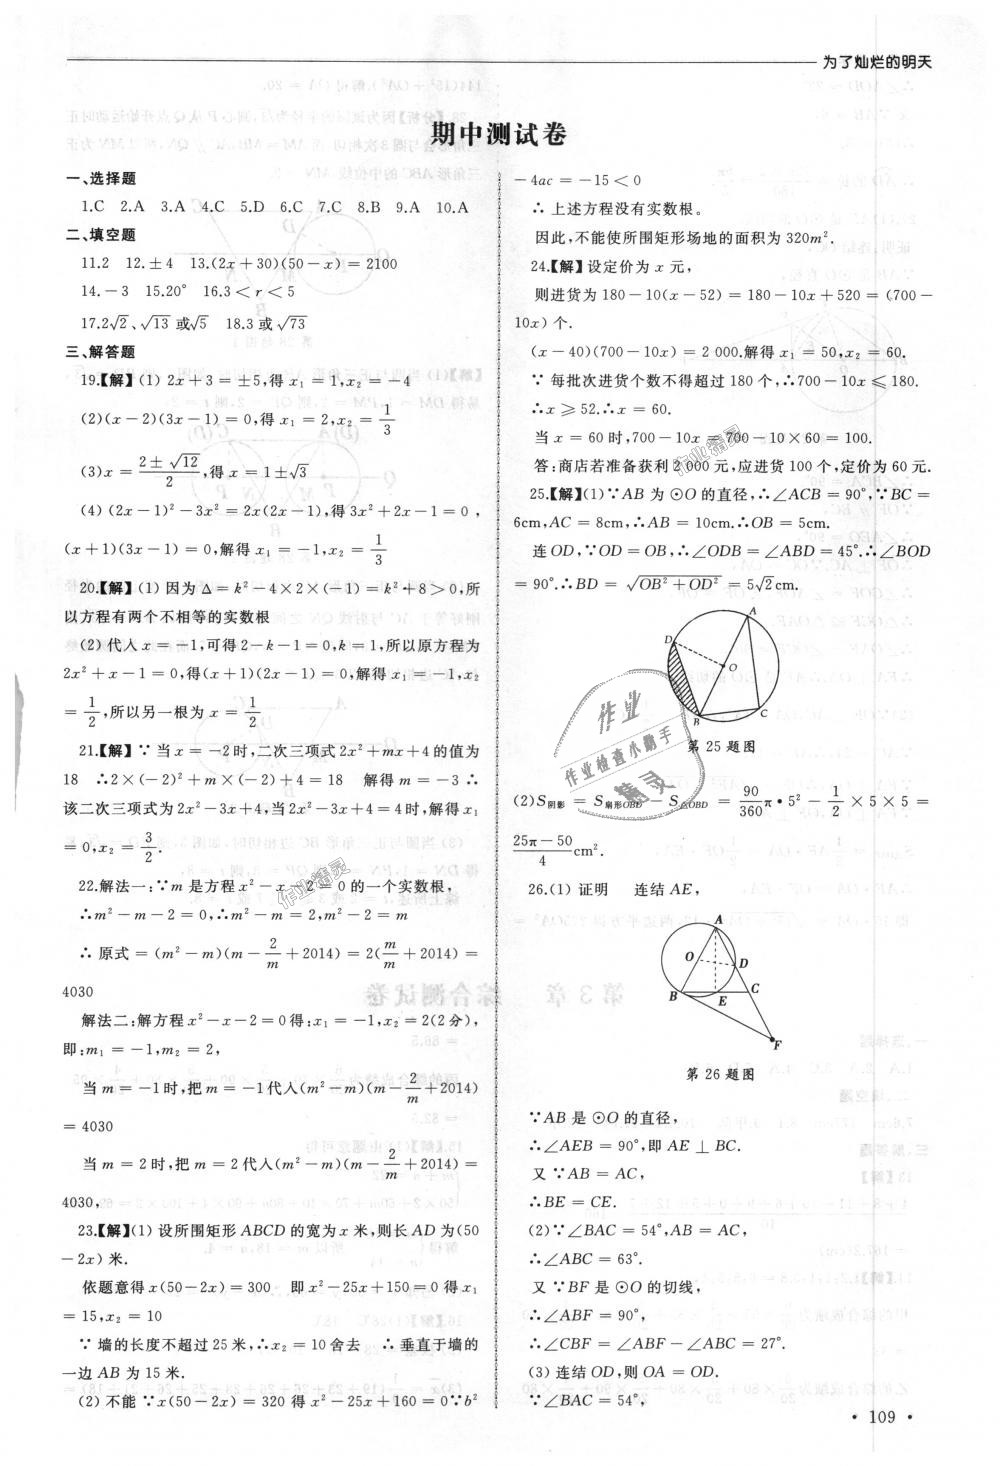 为了灿烂的明天
期中测试卷
一、选择题
1.C 2.A 3.A 4.C 5.D 6.C 7.C 8.B 9.A 10.A
二、填空题
11.2 12.±4 13.(2x+30)(50-x)=2100
14.-3 15.20° 16.3<r<5
17.2√2、√13或√5 18.3或√73
三、解答题
19.【解】(1) 2x+3=±5,得x₁=1,x₂=-4
(2)(x-2)(3x-1)=0,得x₁=2,x₂=1/3
(3)x=(2±√12)/2,得x=1±√3
(4) (2x-1)²-3x²=2x(2x-1),得3x²+2x-1=0,
(x+1)(3x-1)=0,解得x₁=-1,x₂=1/3
20.【解】(1) 因为Δ=k²-4×2×(-1)=k²+8>0,所
以方程有两个不相等的实数根
(2)代人x=-1,可得2-k-1=0,k=1,所以原方程为
2x²+x-1=0,得(x+1)(2x-1)=0,解得x₁=-1,x₂
=1/2,所以另一根为x=1/2
21.【解】∵当x=-2时,二次三项式2x²+mx+4的值为
18 ∴2×(-2)²+m×(-2)+4=18 解得m=-3∴
该二次三项式为2x²-3x+4,当2x²-3x+4时,解得x₁
=0,x₂=3/2.
22.解法一:∵m是方程x²-x-2=0的一个实数根,
∴m²-m-2=0,∴m²-m=2,m²-2=m
∴原式=(m²-m)(m-2/m+2014)=2(m/m+2014)=
4030
解法二:解方程x²-x-2=0得:x₁=-1,x₂=2(2分),
即:m₁=-1,m₂=2,
当m=-1时,把m=-1代人(m²-m)(m-2/m+2014)
=4030
当m=2时,把m=2代人(m²-m)(m-2/m+2014)=
4030,
23.【解】(1) 设所围矩形ABCD的宽为x米,则长AD为(50
-2x)米.
依题意得x(50-2x)=300 即x²-25x+150=0得x₁
=15,x₂=10
∵墙的长度不超过25米,∴x₂=10舍去 ∴垂直于墙的
一边AB为15米.
(2)不能∵x(50-2x)=320得x²-25x+160=0∵b²
-4ac=-15<0
∴上述方程没有实数根。
因此,不能使所围矩形场地的面积为320m².
24.【解】设定价为x元,
则进货为180-10(x-52)=180-10x+520=(700-
10x)个.
(x-40)(700-10x)=2 000.解得x₁=50,x₂=60.
∵每批次进货个数不得超过180个,∴700-10x⩽180.
∴x⩾52.∴x=60.
当x=60时,700-10x=700-10×60=100.
答:商店若准备获利2 000元,应进货100个,定价为60元.
25.【解】(1)∵AB为⊙O的直径,∴∠ACB=90°,∵BC=
6cm,AC=8cm,∴AB=10cm.∴OB=5cm.
连OD,∵OD=OB,∴∠ODB=∠ABD=45°.∴∠BOD
=90°.∴BD=√(OB²+OD²)=5√2cm.
A
D
O
B
C
第25题图
(2)S阴影=S扇形OBD-S△OBD=90/360π·5²-1/2×5×5=
(25π-50)/4cm².
26.(1) 证明 连结AE,
A
O
D
B
E
C
F
第26题图
∵AB是⊙O的直径,
∴∠AEB=90°,即AE⊥BC.
又∵AB=AC,
∴BE=CE.
(2)∵∠BAC=54°,AB=AC,
∴∠ABC=63°.
又∵BF是⊙O的切线,
∴∠ABF=90°,
∴∠CBF=∠ABF-∠ABC=27°.
(3) 连结OD,则OA=OD.
∵∠BAC=54°,
·109·
作业
作业检查小鹏手
精灵
作业精灵
作业精灵